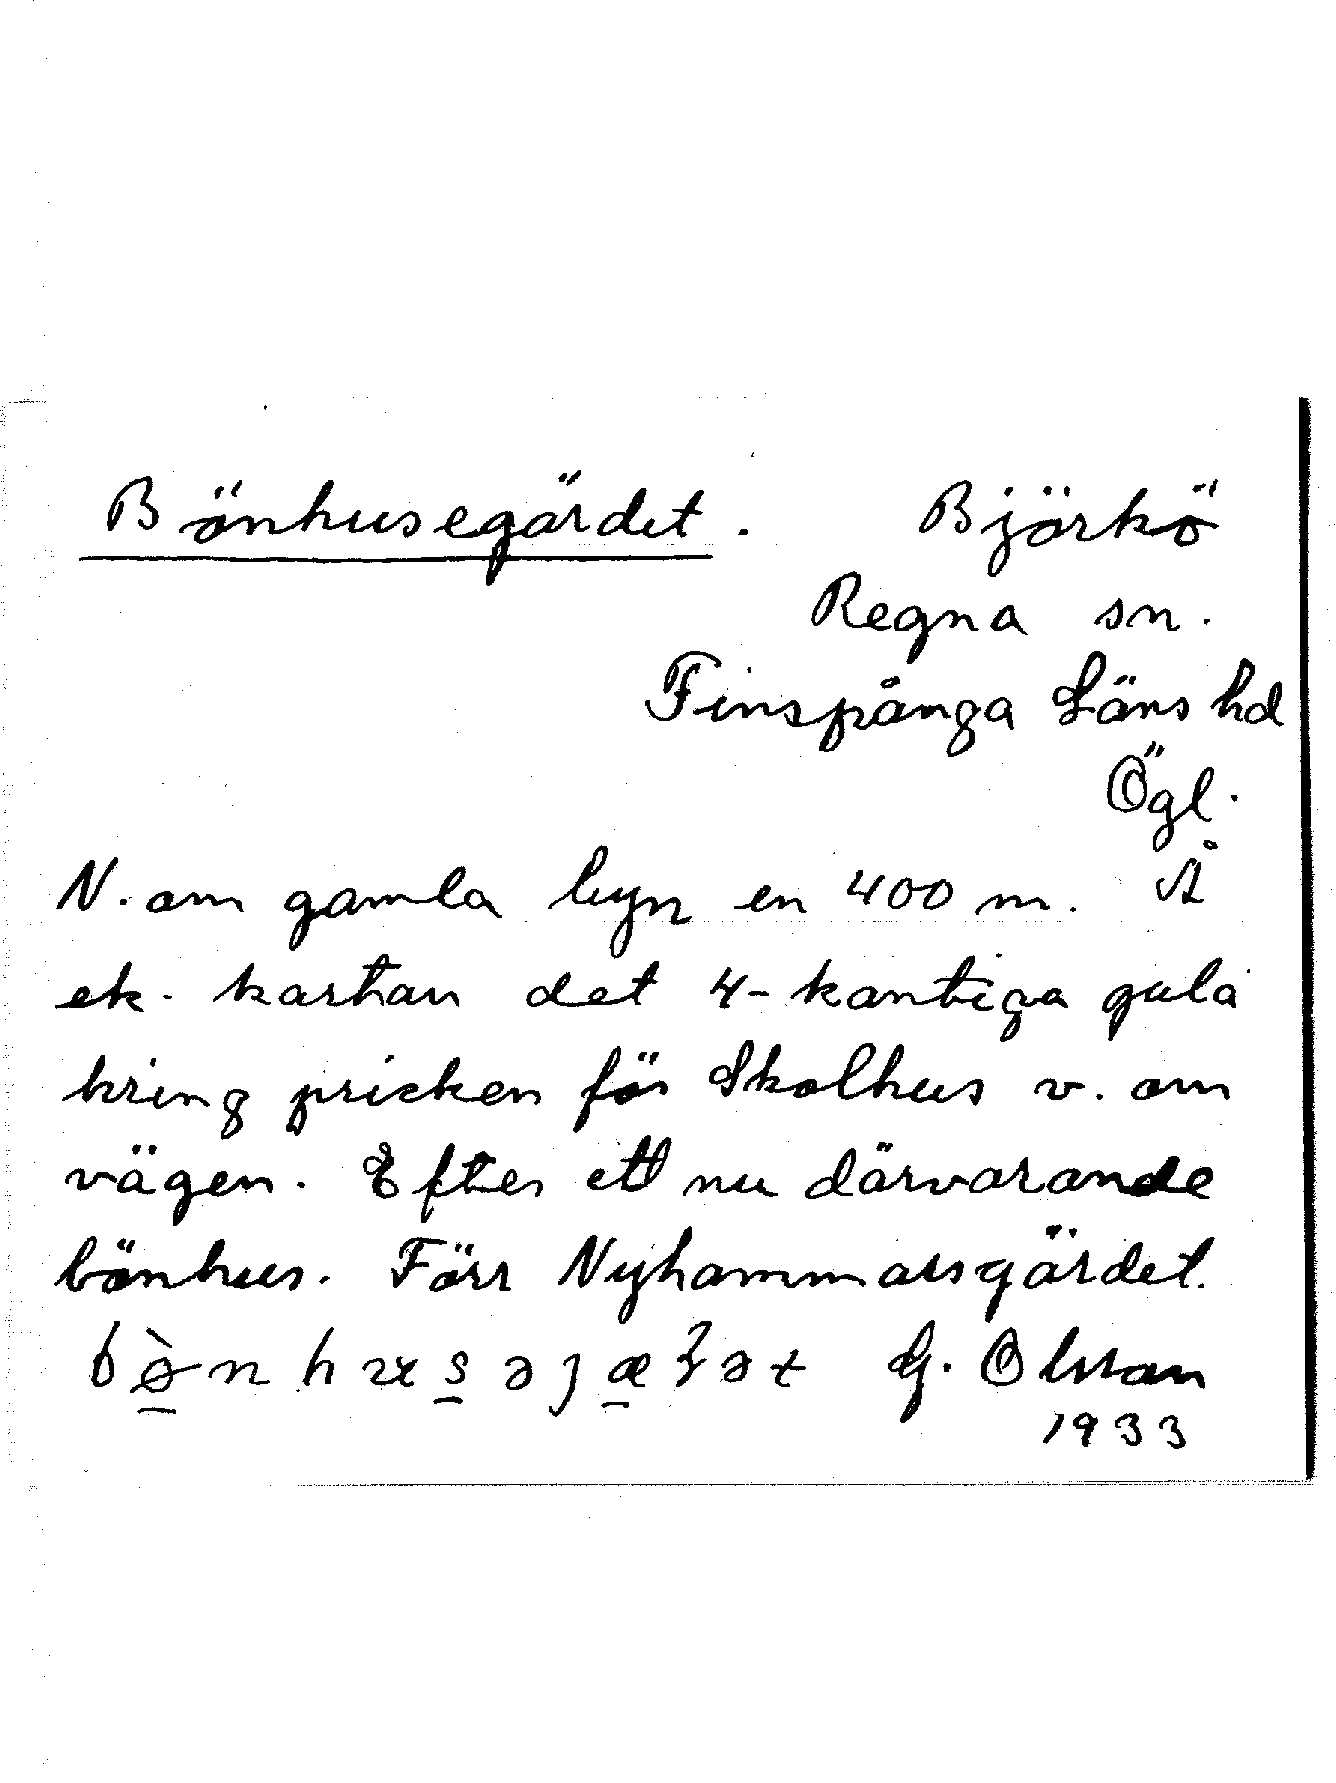 Bönhusegärdet. Björkö
Regna sn.
Finspånga Läns hd
Ögl.
N. om gamla byn en 400 m. Å
ek. kartan det 4-kantiga gula
kring pricken för Skolhus v. om
vägen. Efter ett nu därvarande
bönhus. Förr Nyhammarsgärdet.
G. Olsson
1933